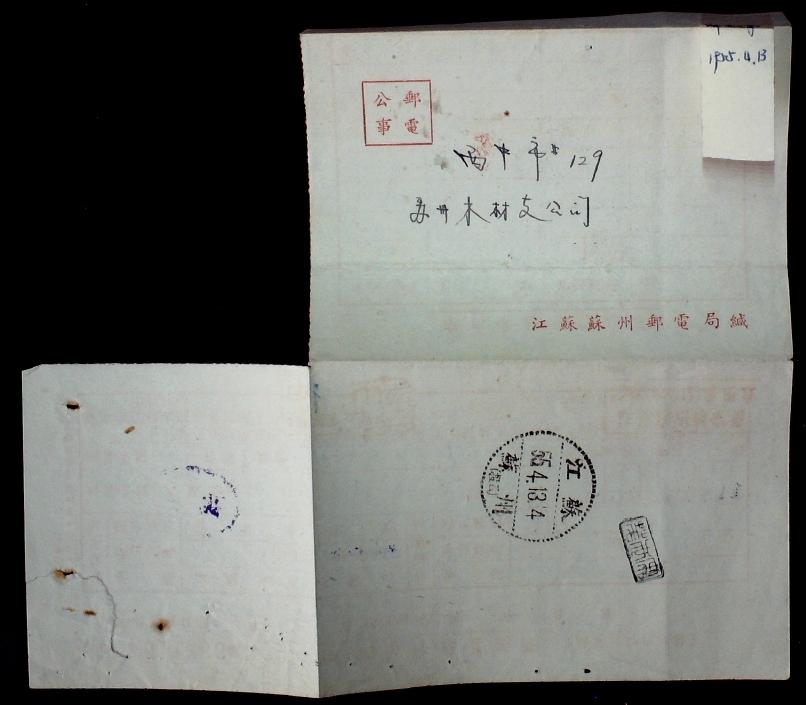 1955.4.13
郵電
公事
中市 129
苏州木材支公司
江蘇蘇州郵電局緘
江蘇
55.4.13.4
蘇州